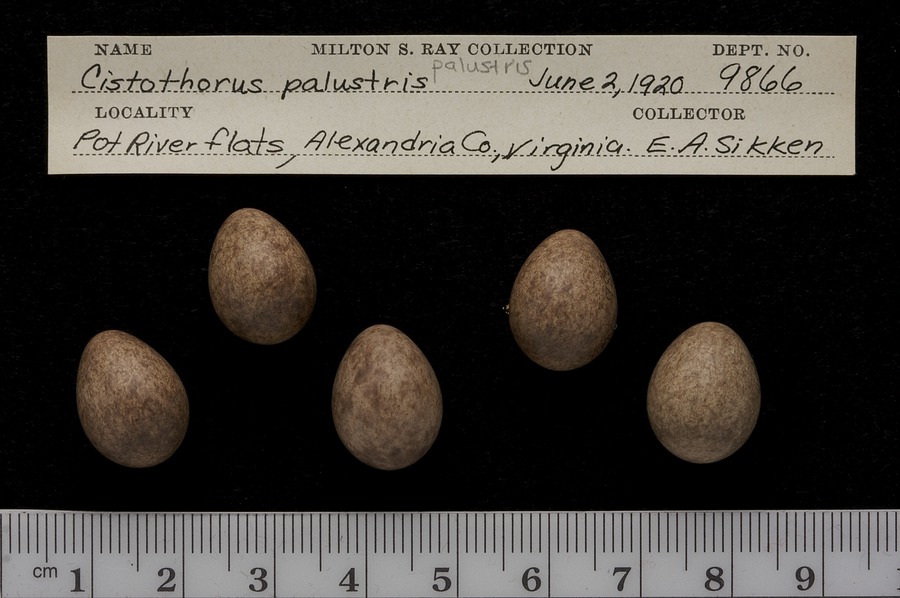 NAME MILTON S. RAY COLLECTION DEPT. NO.
palustris
Cistothorus palustris June 2, 1920 9866
LOCALITY COLLECTOR
Pot River flats, Alexandria Co., Virginia. E. A. Sikken
cm 1 2 3 4 5 6 7 8 9 1